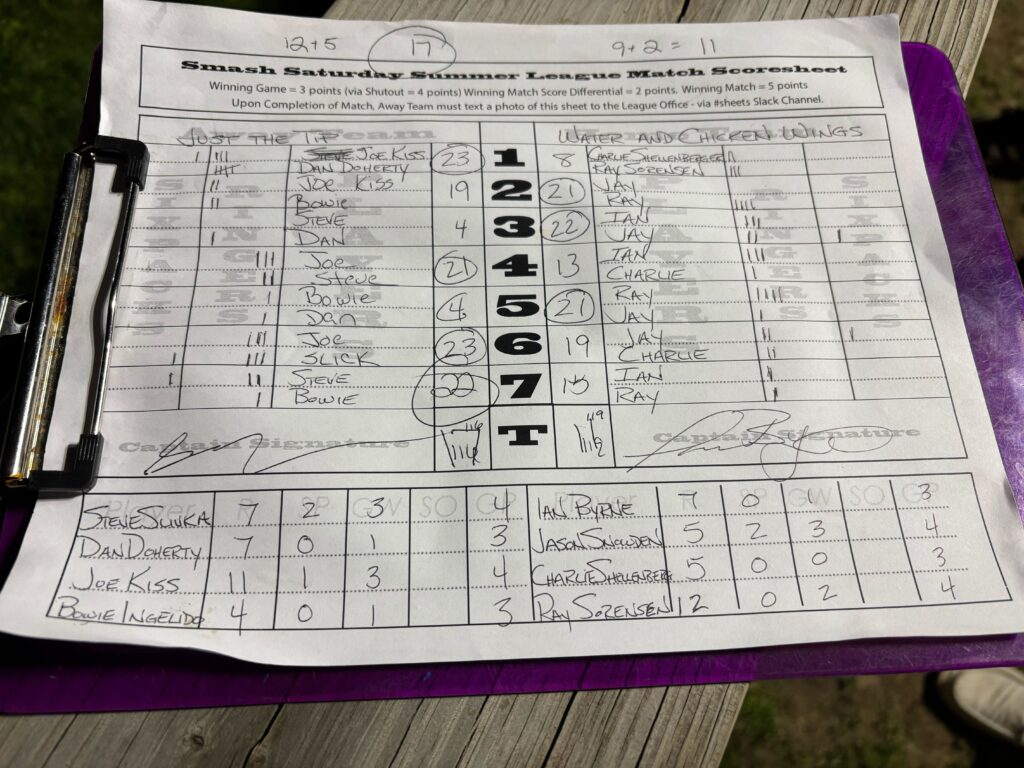 12+5 17 9+2 = 11
Smash Saturday Summer League Match Scoresheet
Winning Game = 3 points (via Shutout = 4 points) Winning Match Score Differential = 2 points. Winning Match = 5 points
Upon Completion of Match, Away Team must text a photo of this sheet to the League Office - via #sheets Slack Channel.
JUST THE TIP Team WATER AND CHICKEN WINGS
JOE KISS 23 1 8 CHARLIE SHELLENBERGER
DAN DOHERTY RAY SORENSEN
JOE KISS 19 2 21 JAY
BOWIE RAY
STEVE 4 3 22 IAN
DAN JAY
JOE 21 4 13 IAN
STEVE CHARLIE
BOWIE 4 5 21 RAY
DAN JAY
JOE 23 6 19 JAY
SLICK CHARLIE
STEVE 22 7 15 IAN
BOWIE RAY
116 T 119
Captain Signature Captain Signature
Player P SP GW SO GP Player P SP GW SO GP
STEVE SLIVKA 7 2 3 4 IAN BYRNE 7 0 1 3
DAN DOHERTY 7 0 1 3 JASON SNOWDEN 5 2 3 4
JOE KISS 11 1 3 4 CHARLIE SHELLENBERG 5 0 0 3
BOWIE INGELIDO 4 0 1 3 RAY SORENSEN 12 0 2 4